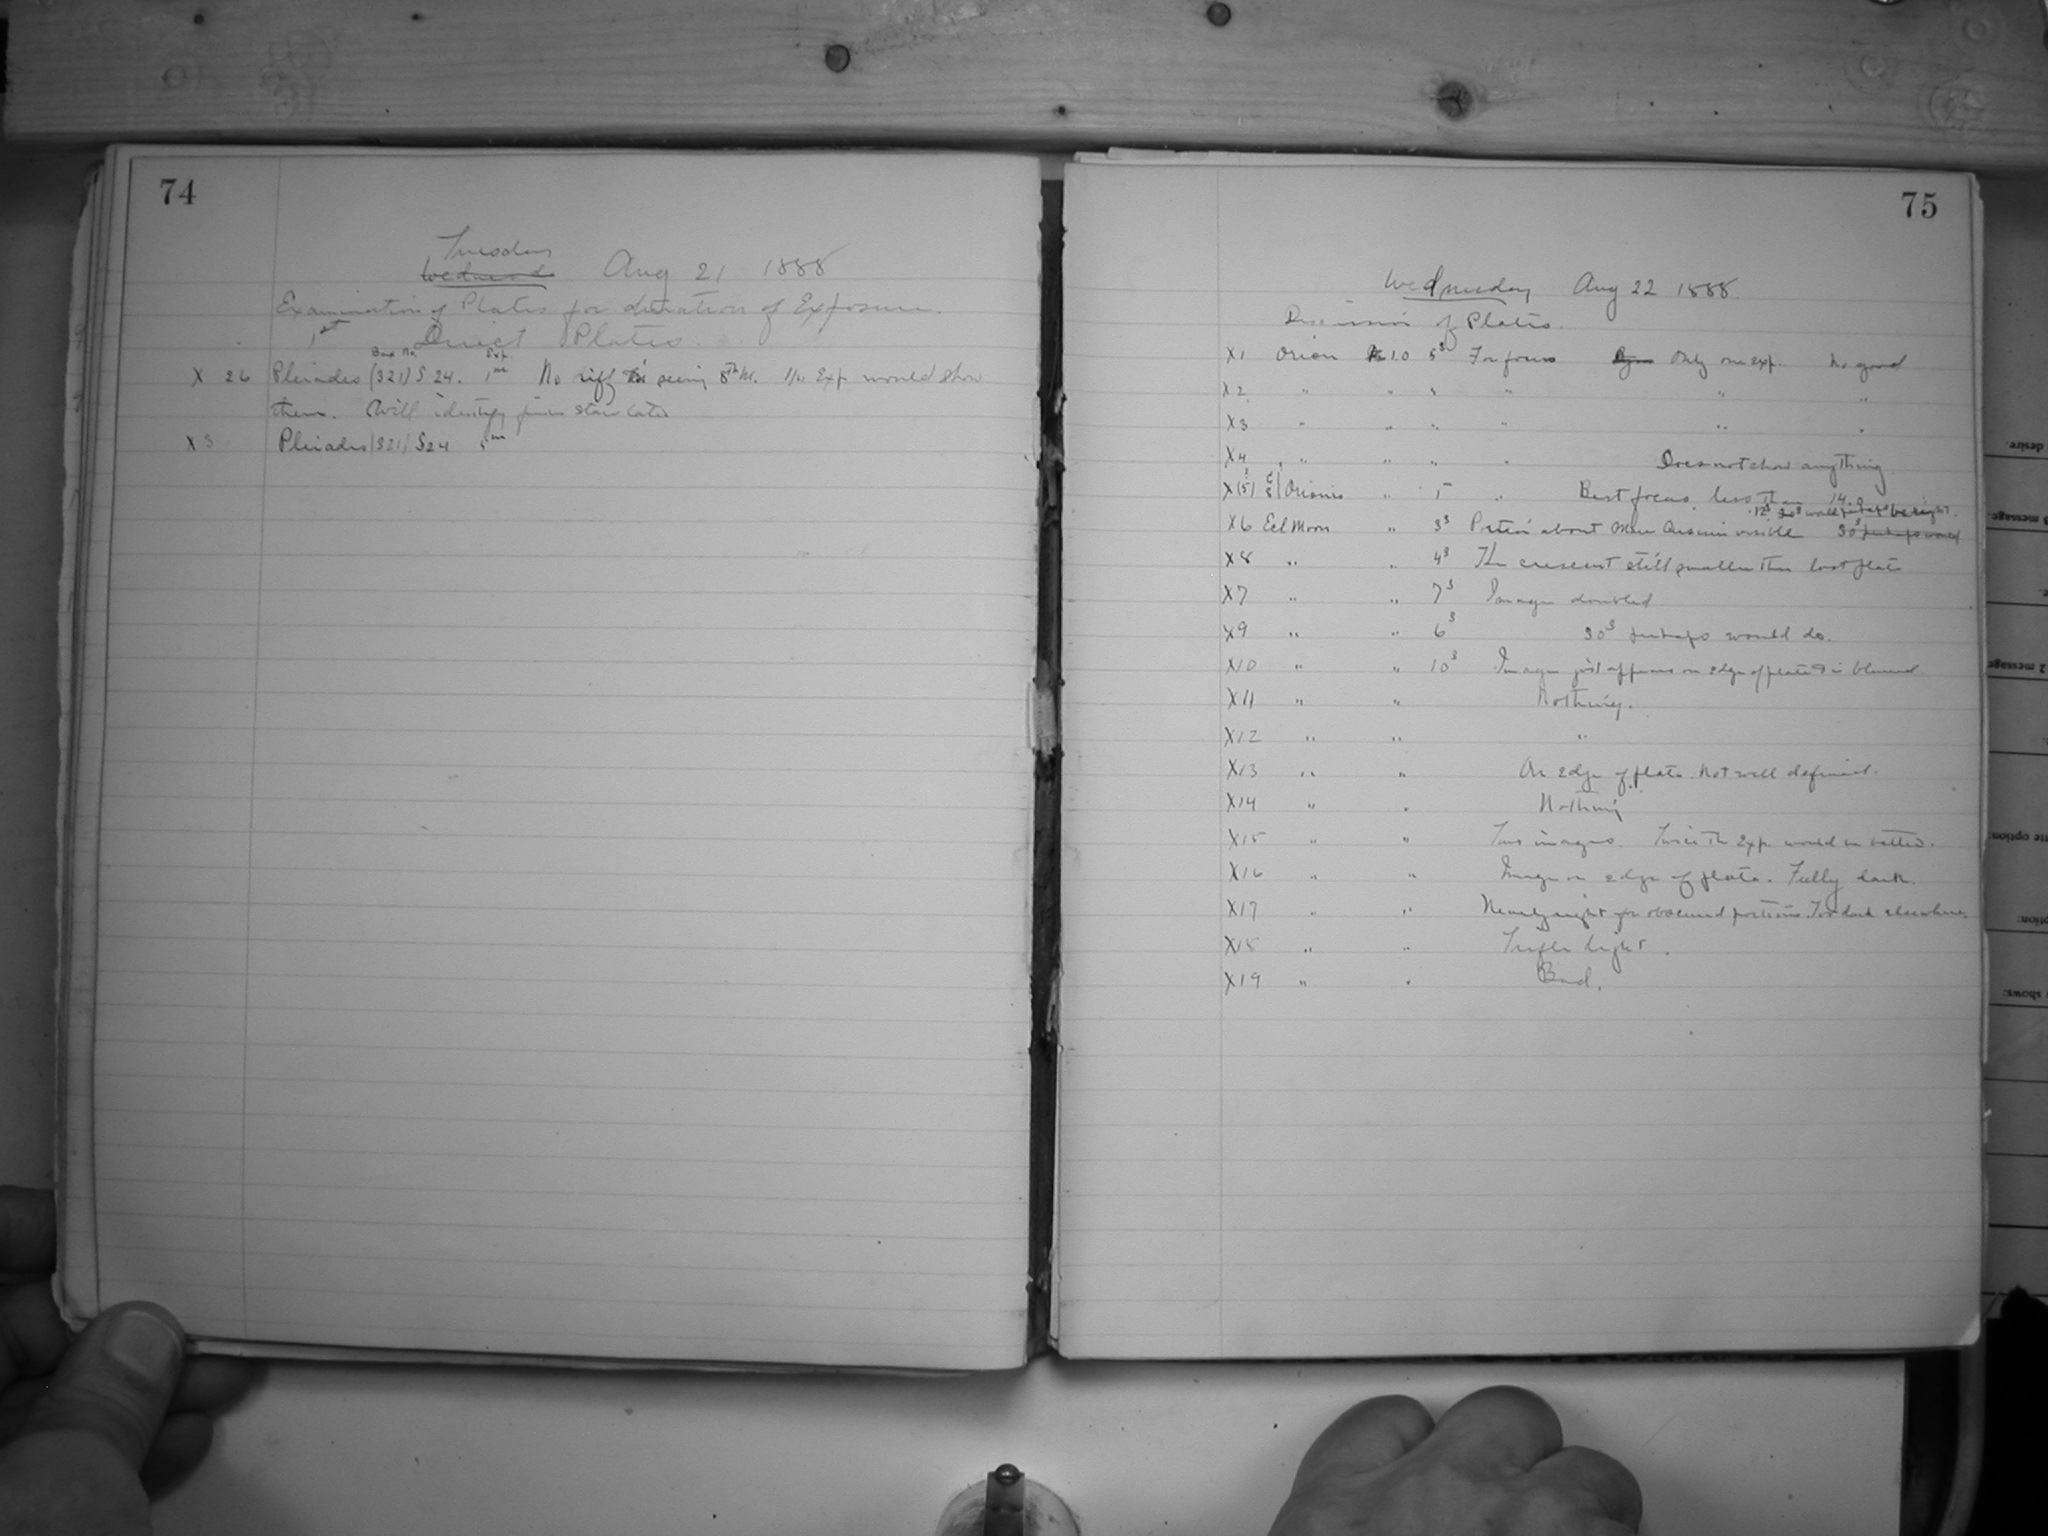 74
Tuesday
Wednesd Aug 21 1888
Examination of Plates for duration of Exposure.
1st Direct Plates.
Box No. Exp.
X 26 Pleiades (321) S 24. 1m No diff in seeing 8th M. 1/4 Exp would show
them. Will identify stars later
X 3 Pleiades (321) S24 5m
75
Wednesday Aug 22 1888.
Discussion of Plates.
X1 Orion 10 5s For focus Only one exp. No good
X2 " " " " " "
X3 " " " " " "
X4 " " " " Does not show anything.
X(5) Orionis " 5 " Best focus less than 14.0
12s 30s would perhaps be right.
X6 Ecl Moon " 3s Portion about Mare Crisium visible 30s perhaps would
X8 " " 4s The crescent still smaller than last plate
X7 " " 7s Image doubled
X9 " " 6s 30s perhaps would do.
X10 " " 10s Image just appears on edge of plate & is blurred.
X11 " " Nothing.
X12 " " "
X13 " " On edge of plate. Not well defined.
X14 " " Nothing
X15 " " Two images. Twice the Exp. would be better.
X16 " " Image on edge of plate. Fully dark.
X17 " " Nearly right for obscured portions. Too dark elsewhere.
X18 " " Trifle light.
X19 " " Bad.
desire.
message.
2 message
option:
option:
shows: